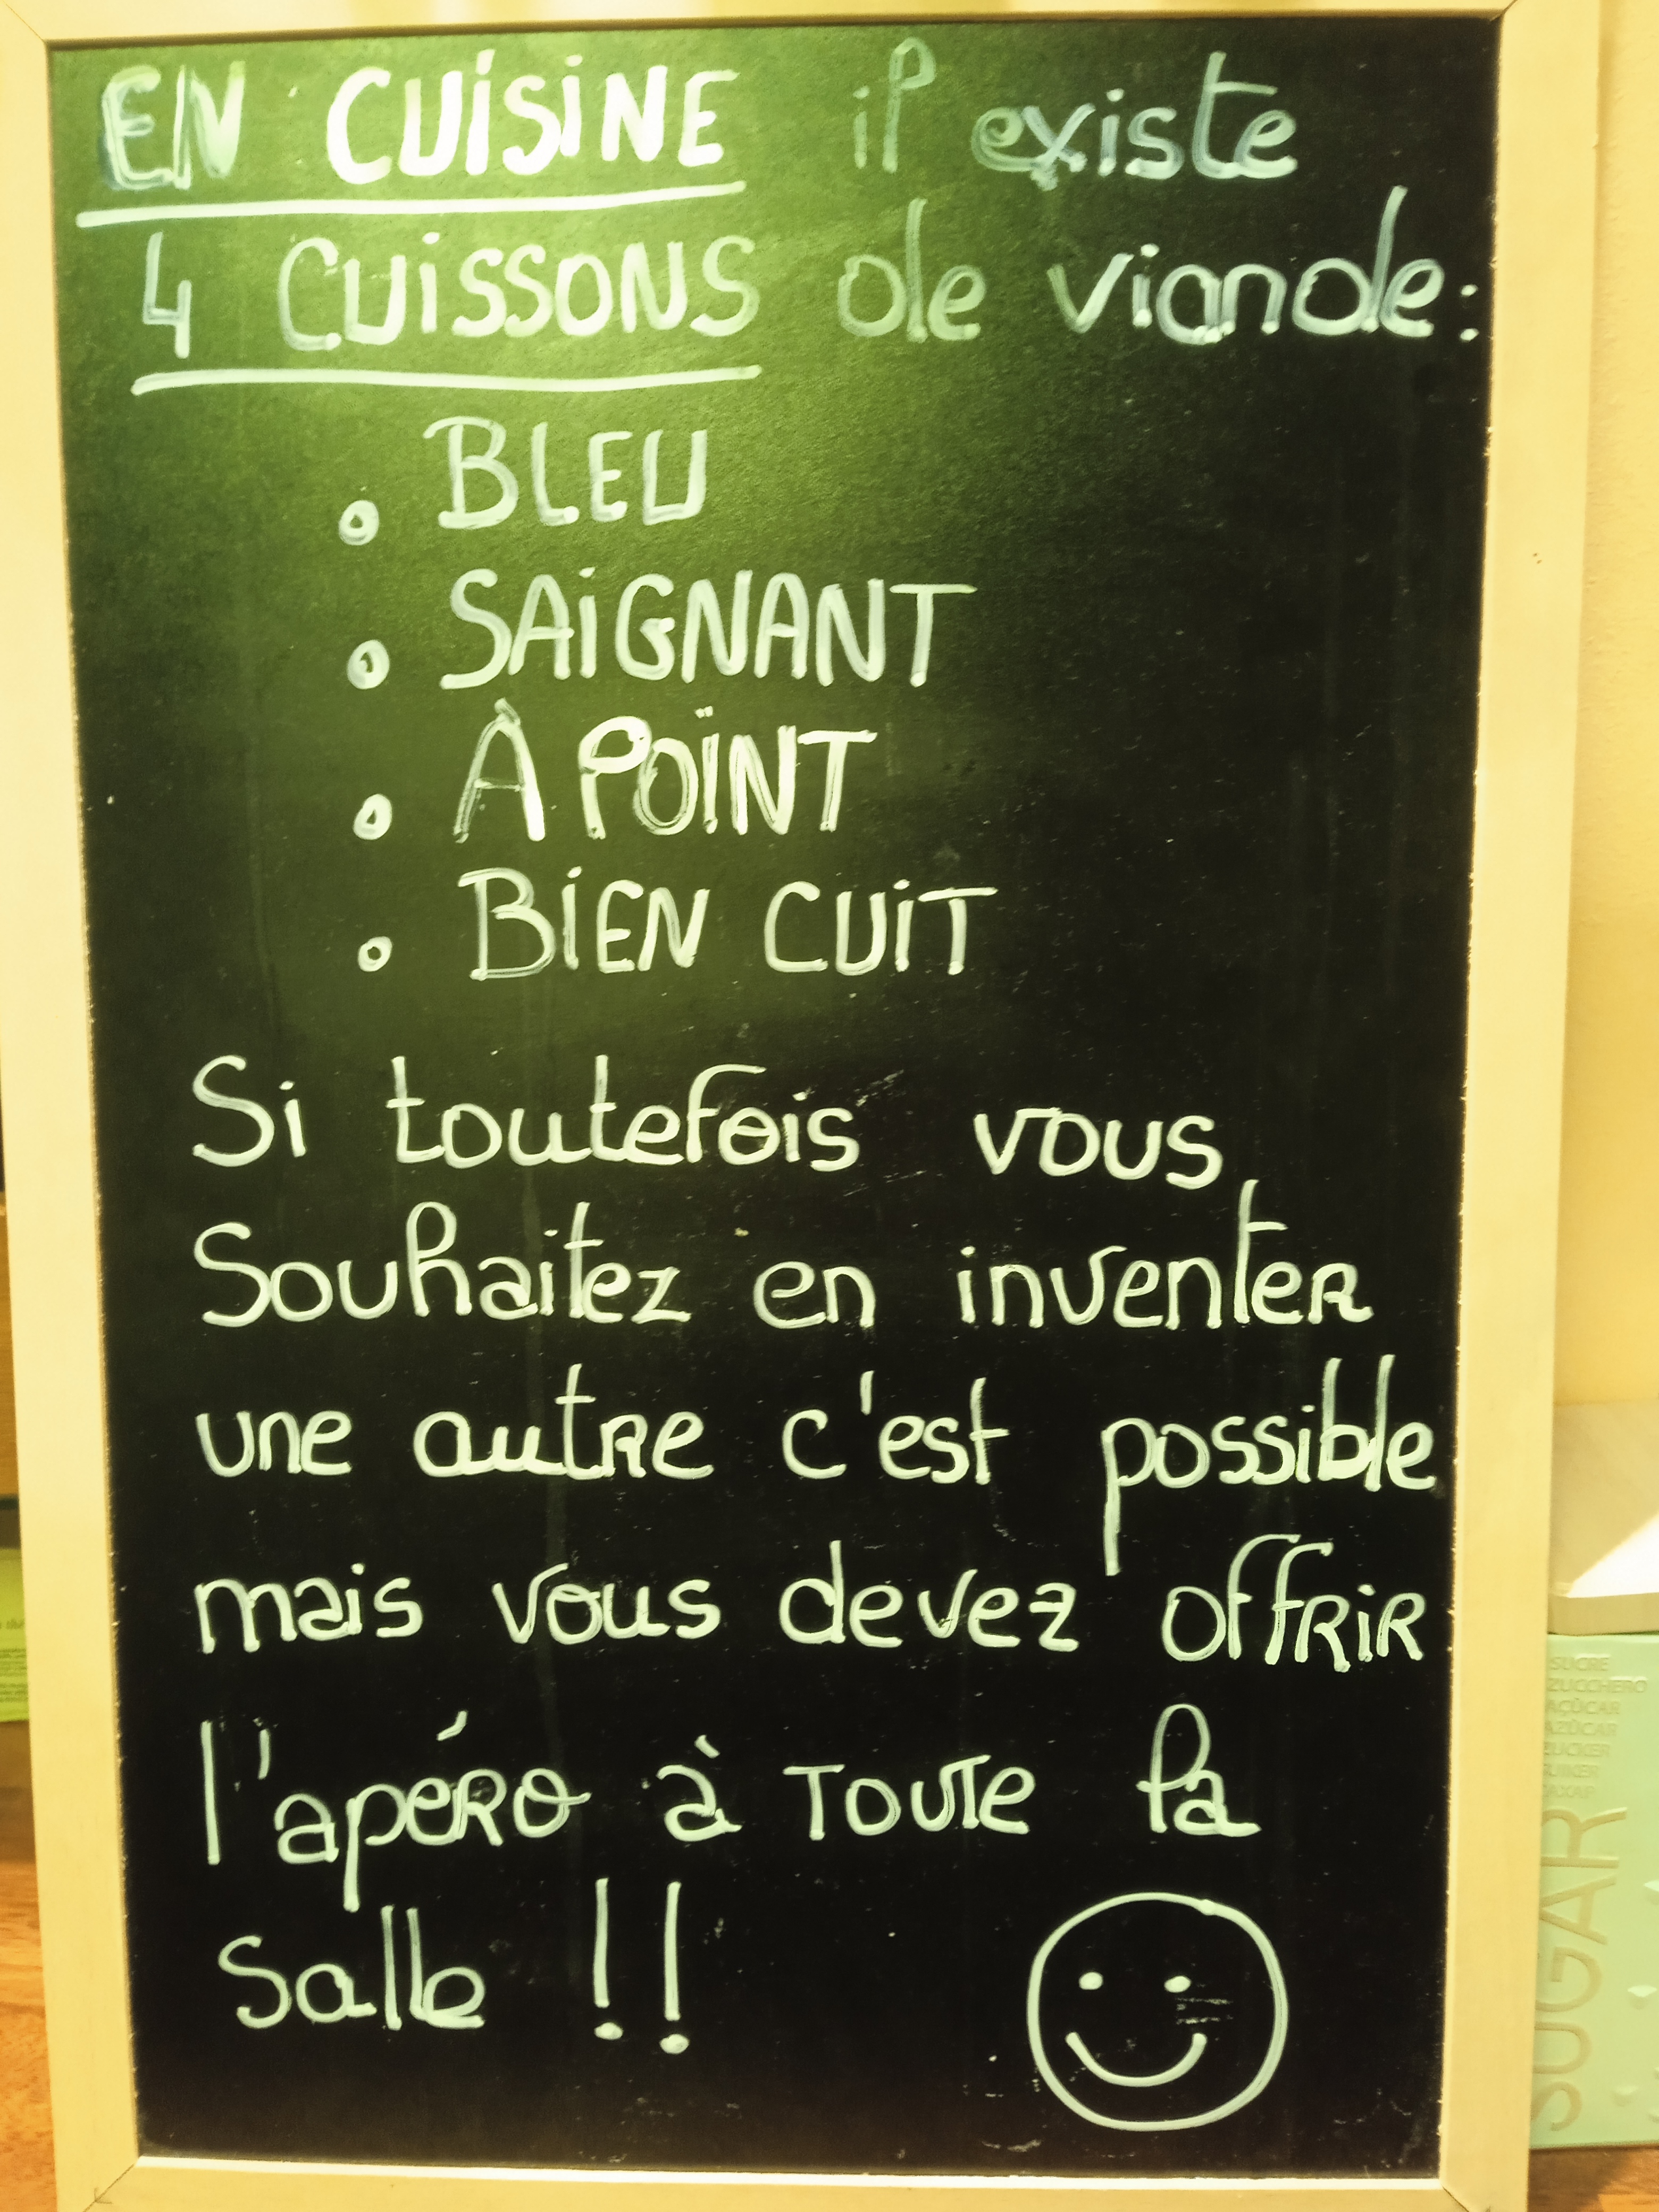 EN CUISINE il existe
4 CUISSONS de viande:
• BLEU
• SAIGNANT
• À POINT
• BIEN CUIT
Si toutefois vous
Souhaitez en inventer
une autre c'est possible
mais vous devez offrir
l'apéro à TOUTe la
Salle !!
SUCRE
ZUCCHERO
AÇÚCAR
AZÚCAR
ZUCKER
SUIKER
SUGAR